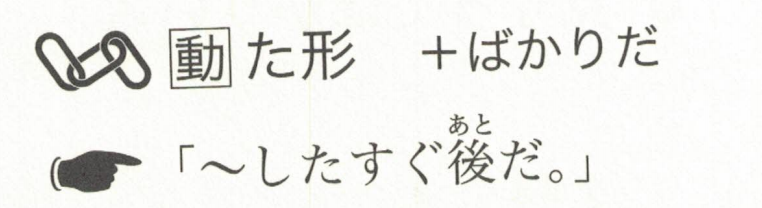 動た形　＋ばかりだ
「～したすぐ後だ。」
あと